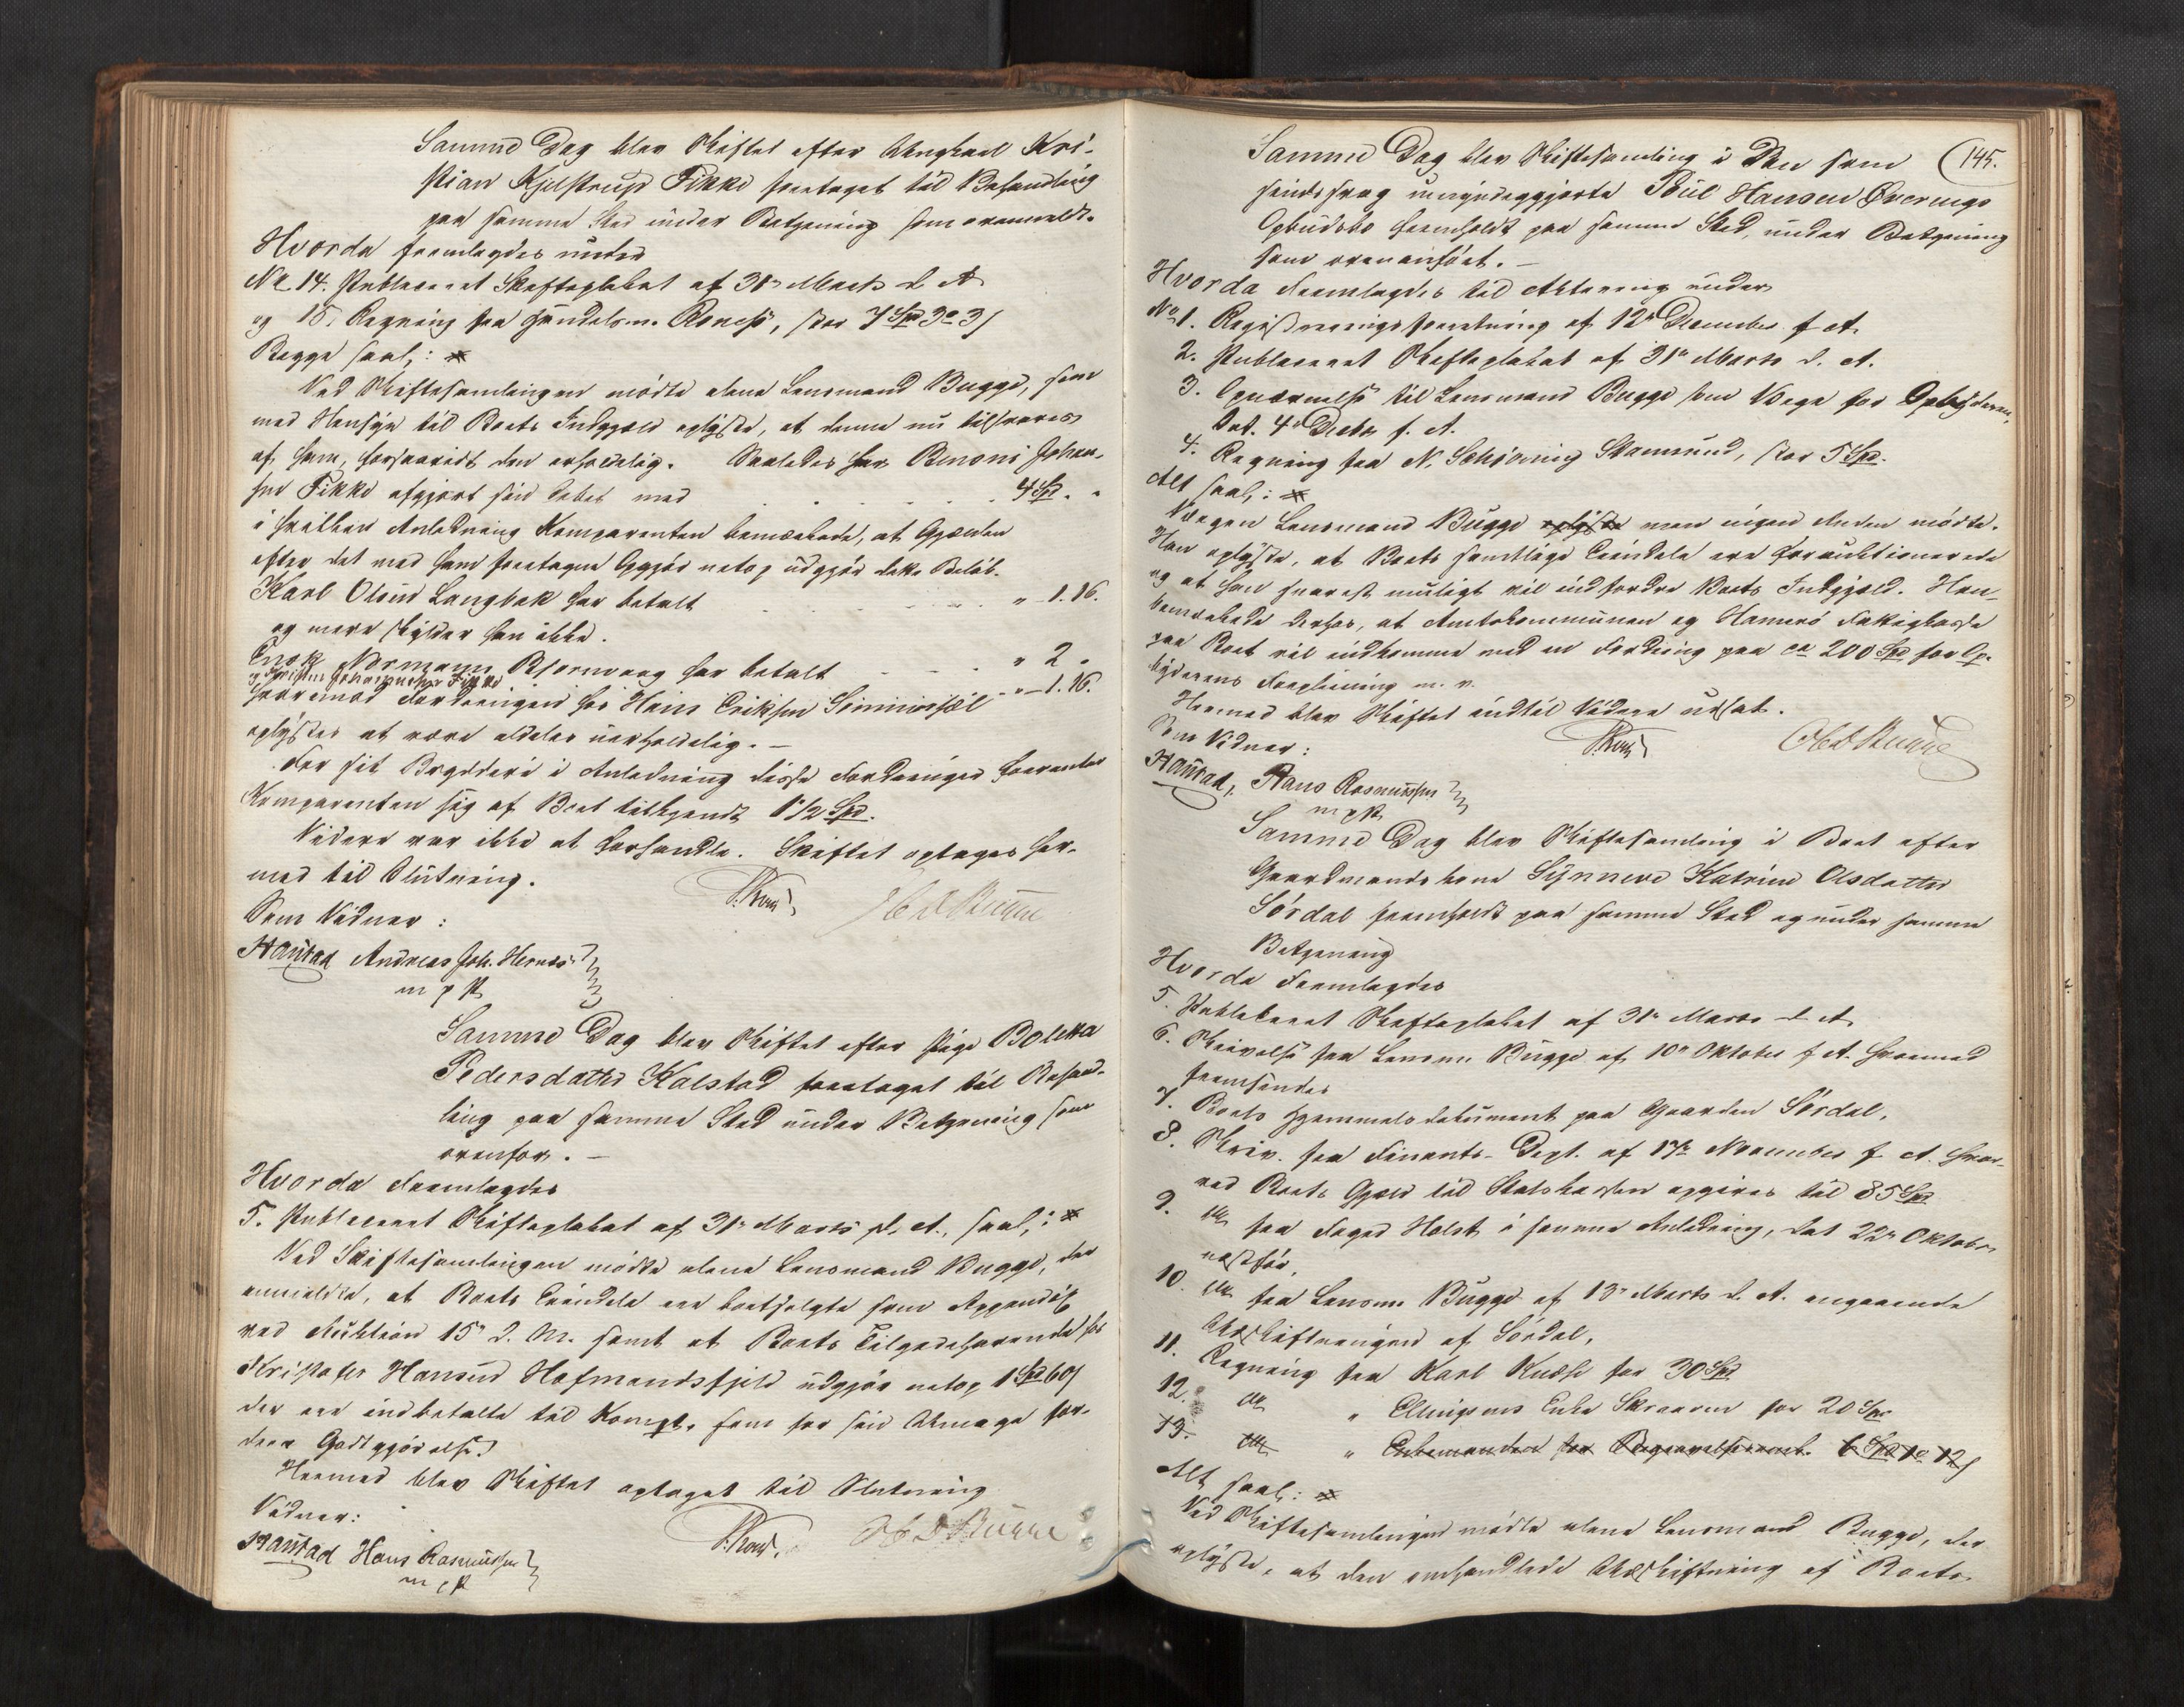 Samme Dag blev Skiftet efter Ungkarl Kri-
stian Kjelstrup Fikke foretaget til Behandling
paa samme Sted under Betjening som ovenmeldt.
Hvorda fremlagdes under
No 14. Publiceret Skifteplakat af 31te Marts d. A
og 15. Regning fra Handelsm. Rones, stor 7 Spd 3 3
Begge saal.:
Ved Skiftesamlingen mødte alene Lensmand Bugge, som
med Hensyn til Boets Indgjæld oplyste, at denne nu tilsvares
af ham, forsaavidt den erholdelig. Saaledes har Benoni Johan-
sen Fikke afgjort sin Debet med 4 Spd. "
i hvilken Anledning Komparenten bemærkede, at Gjælden
efter det med ham foretagne Opgjør netop udgjør dette Beløb.
Karl Olsen Langbak har betalt " 1. 16.
og mere skylder han ikke.
Enok Normann Bjørnvaag har betalt " 2 "
og Kristen Johannesen Fikke " 1. 16.
hvorimod Fordringen hos Hans Eriksen oplystes
oplystes at være aldeles uerholdelig. –
For sit Bryderi i Anledning disse Fordringer forventer
Komparenten sig af Boet tilkjendt 1 1/2 Spd.
Videre var ikke at forhandle. Skiftet optages her-
med til Slutning.
Som Vidner:
Haurad Andreas Joh. Hernes
m p P
Samme Dag blev Skiftet efter Pige Boletta
Pedersdatter Kalstad foretaget til Behand-
ling paa samme Sted under Betjening som
ovenfor. –
Hvorda fremlagdes
5. Publiceret Skifteplakat af 31te Marts d. A., saal.:
Ved Skiftesamlingen mødte alene Lensmand Bugge, der
anmeldte, at Boets Eiendele ere bortsolgte som Appendix
ved Auktion 15de d. M. samt at Boets Tilgodehavende hos
Kristofer Hansen Hofmandsfjeld udgjør netop 1 Spd 60
der ere indbetalte til Kompt. som for sin Umage for-
drer Godtgjørelse.
Hermed blev Skiftet optaget til Slutning
Vidner:
Haurad Hans Rasmussen
m p P
145.
Samme Dag blev Skiftesamling i Den som
sindssvag umyndiggjorte Poul Hansen Øverengs
Opbudsbo fremholdt paa samme Sted, under Betjening
som ovenanført. –
Hvorda fremlagdes til Aktering under
No 1. Registreringsforretning af 12te December f. A.
2. Publiceret Skifteplakat af 31te Marts d. A.
3. Opnævnelse til Lensmand Bugge som Værge for Opbyderen,
dat. 4de Decbr f. A.
4. Regning fra N. Schjøning Stamsund, stor 5 Spd.
Alt saal.:
Værgen Lensmand Bugge oplyste men ingen Anden mødte.
Han oplyste, at Boets samtlige Eiendele ere forauktionerede
og at han snarest muligt vil indfordre Boets Indgjæld. Han
bemærkede derhos, at Amtskommunen og Hamerø Fattigkasse
paa Boet vil indkomme med en Fordring paa ca 200 Spd for Op-
byderens Forpleining m. v.
Hermed blev Skiftet indtil Videre udsat.
Som Vidner:
Haurad, Hans Rasmussen
m p P
Samme Dag blev Skiftesamling i Boet efter
Gaardmandskone Synneve Katrine Olsdatter
Sørdal fremholdt paa samme Sted og under samme
Betjening
Hvorda fremlagdes
5. Publiceret Skifteplakat af 31te Marts d. A.
6. Skrivelse fra Lensm. Bugge af 10de Oktober f. A. hvormed
fremsendes
7. Boets Hjemmelsdokument paa Gaarden Sørdal,
8. Skriv. fra Finants-Dept. af 17de November f. A. hvor-
ved Boets Gjæld til Statskassen opgives til 85 Spd
9. do fra Foged Holst i samme Anledning, dat 22de Oktober
næstfør,
10. do fra Lensm. Bugge af 13de Marts d. A. angaaende
Udskiftningen af Sørdal,
11. Regning fra Karl Knudsen for 30 Spd
12. do " Ellingsens Enke Skraaven for 20 Spd
13. do " Enkemanden for Begravelsesomk. 6 Spd 1 12
Alt saal.:
Ved Skiftesamlingen mødte alene Lensmand Bugge, der
oplyste, at den omhandlede Udskiftning af Boets